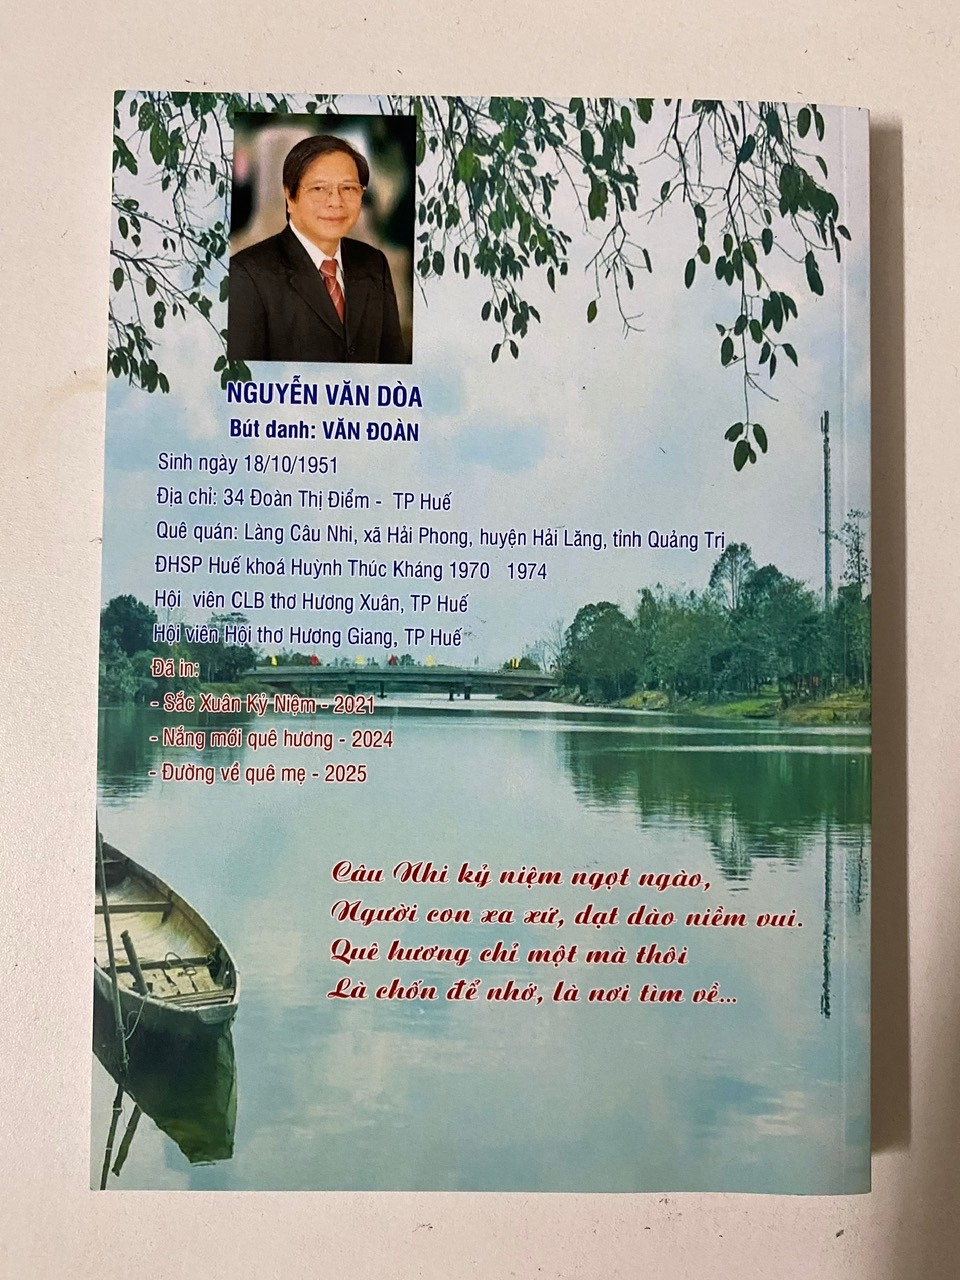 NGUYỄN VĂN DÒA
Bút danh: VĂN ĐOÀN
Sinh ngày 18/10/1951
Địa chỉ: 34 Đoàn Thị Điểm - TP Huế
Quê quán: Làng Câu Nhi, xã Hải Phong, huyện Hải Lăng, tỉnh Quảng Trị
ĐHSP Huế khoá Huỳnh Thúc Kháng 1970 1974
Hội viên CLB thơ Hương Xuân, TP Huế
Hội viên Hội thơ Hương Giang, TP Huế
Đã in:
- Sắc Xuân Kỷ Niệm - 2021
- Nắng mới quê hương - 2024
- Đường về quê mẹ - 2025
Câu Nhi kỷ niệm ngọt ngào,
Người con xa xứ, dạt dào niềm vui.
Quê hương chỉ một mà thôi
Là chốn để nhớ, là nơi tìm về...